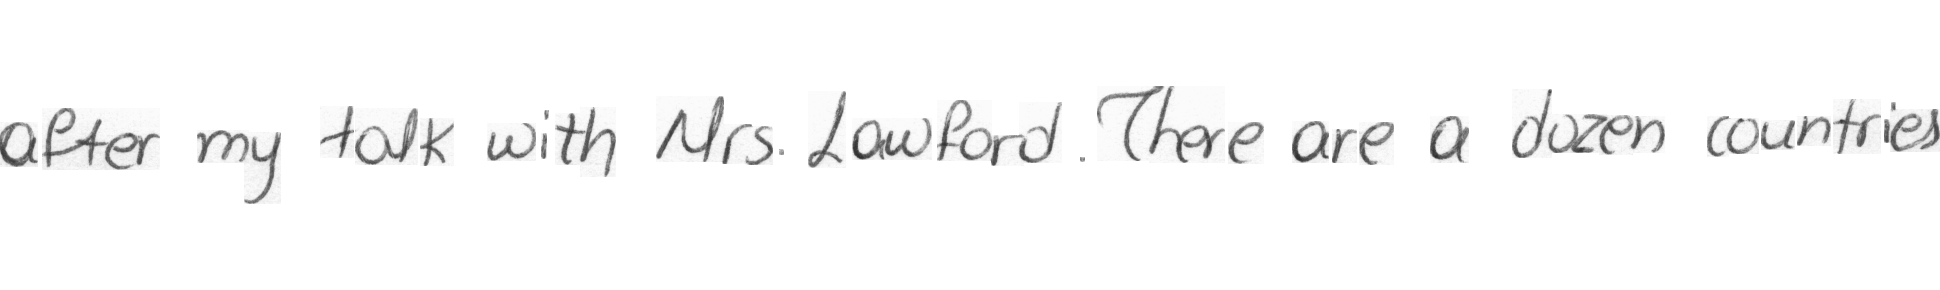 after my talk with Mrs. Lawford. There are a dozen countries